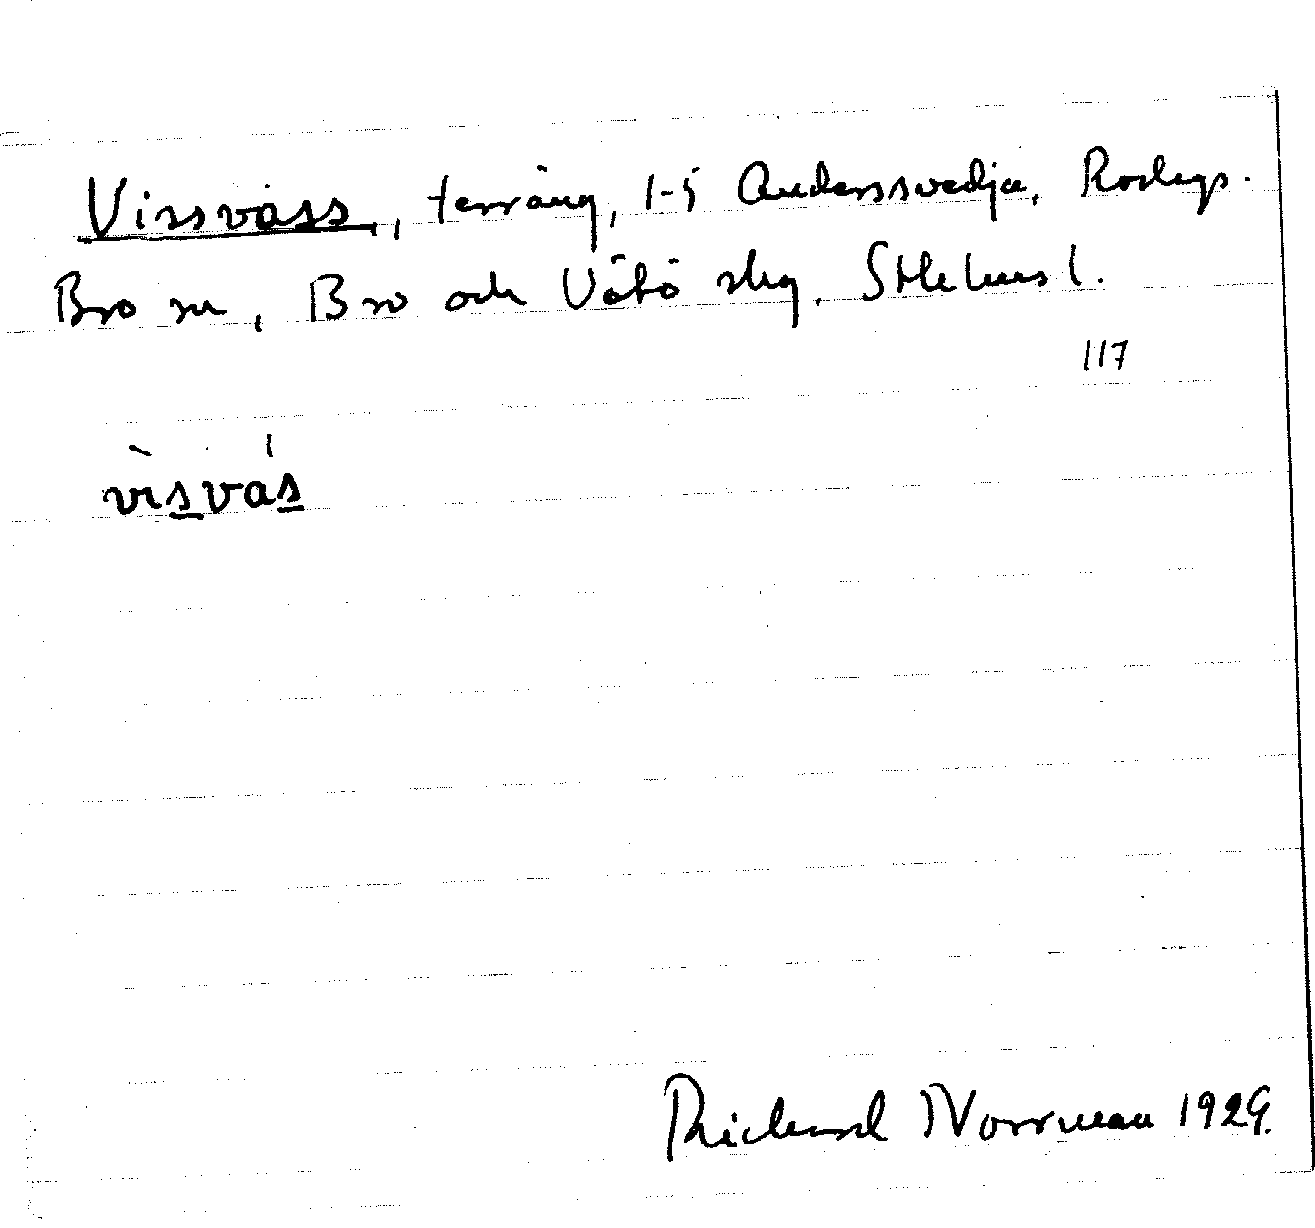 Vissvass, terräng, 1-5 Anderssvedja, Roslags-
Bro sn, Bro och Vätö skg. Sthlms l.
117
visvas
Richard Norrman 1929.